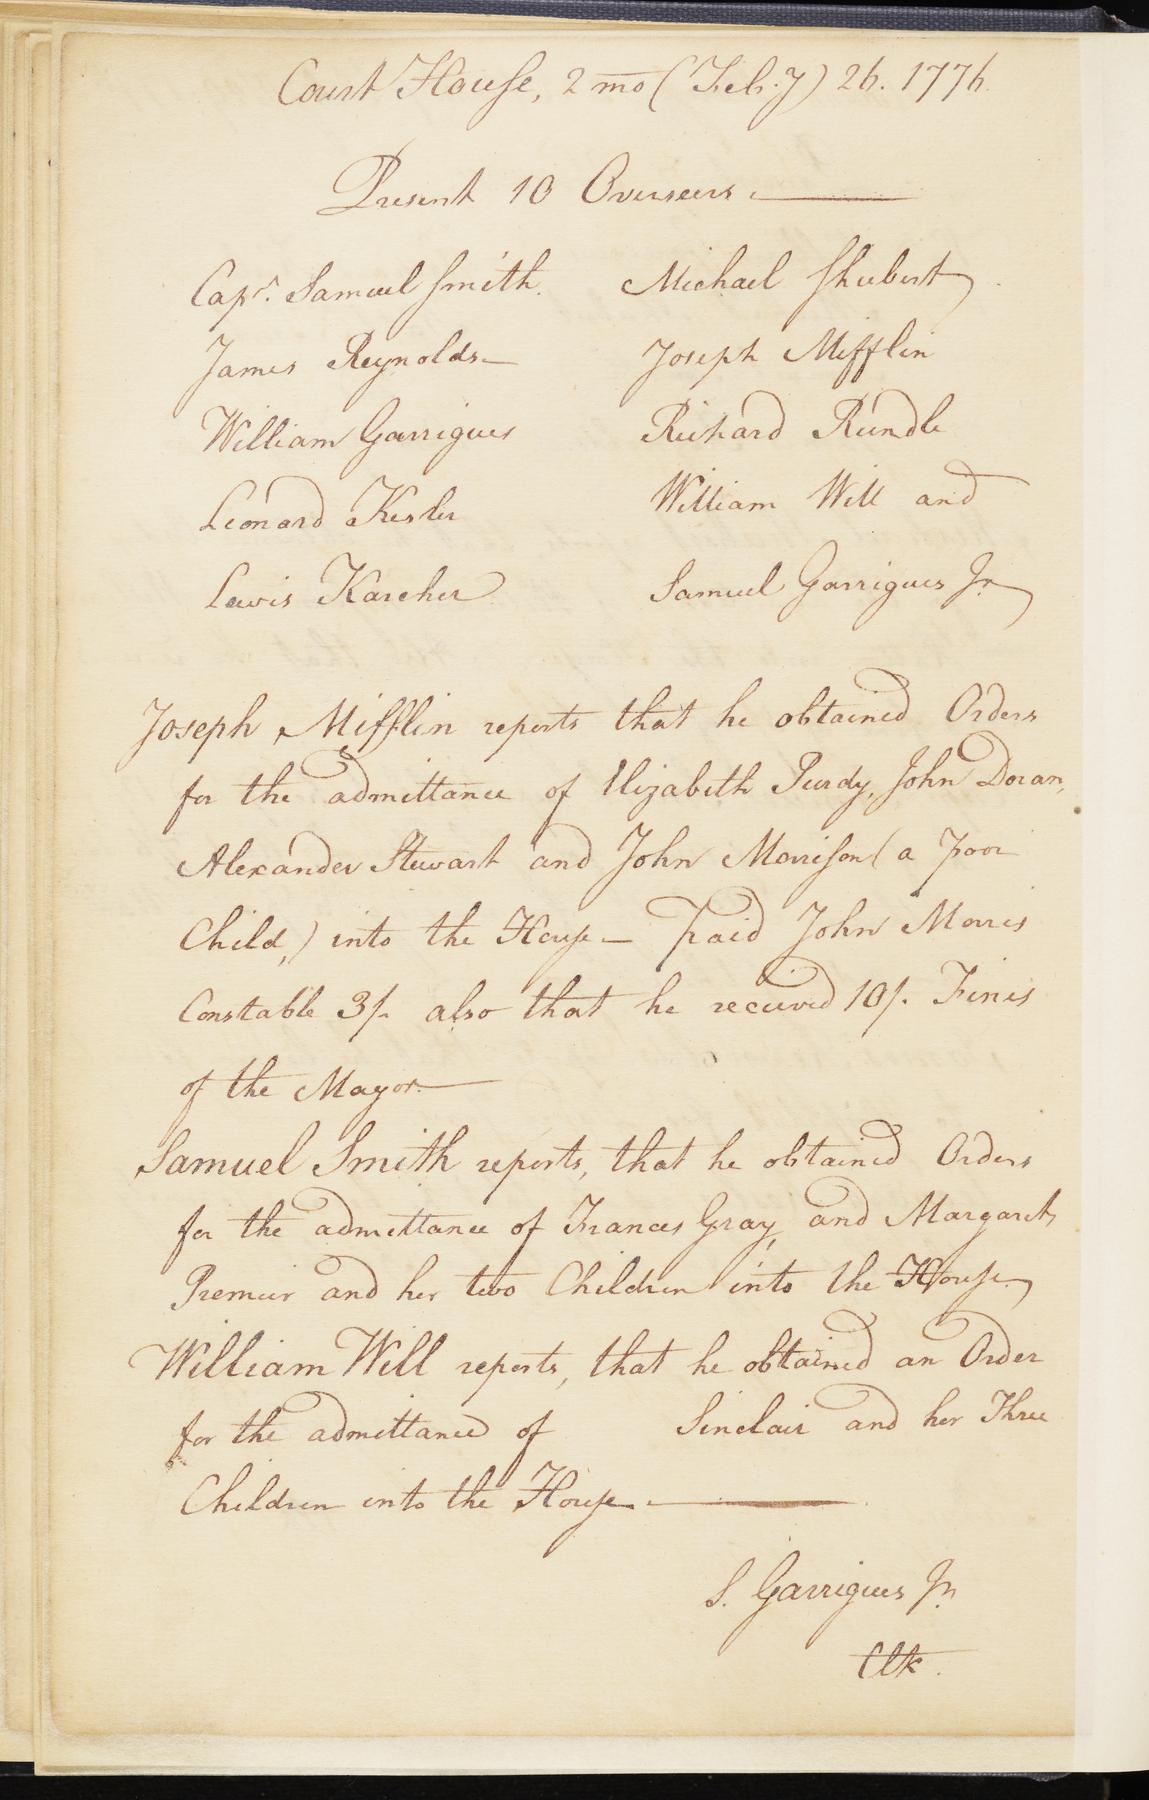 Court House, 2 mo (Feb.y) 26. 1776.
Present 10 Overseers.
Capt. Samuel Smith. Michael Shubert
James Reynolds Joseph Mifflin
William Garrigues Richard Rundle
Leonard Kesler William Will and
Lewis Karcher Samuel Garrigues Jr.
Joseph Mifflin reports that he obtained Orders
for the admittance of Elizabeth Purdy, John Doran,
Alexander Stewart and John Morrison (a poor
Child,) into the House — paid John Morris
Constable 3/- also that he received 10/. Fines
of the Mayor.
Samuel Smith reports, that he obtained Orders
for the admittance of Frances Gray, and Margaret
Premeir and her two Children into the House
William Will reports, that he obtained an Order
for the admittance of Sinclair and her Three
Children into the House.
S. Garrigues Jr.
Clk.